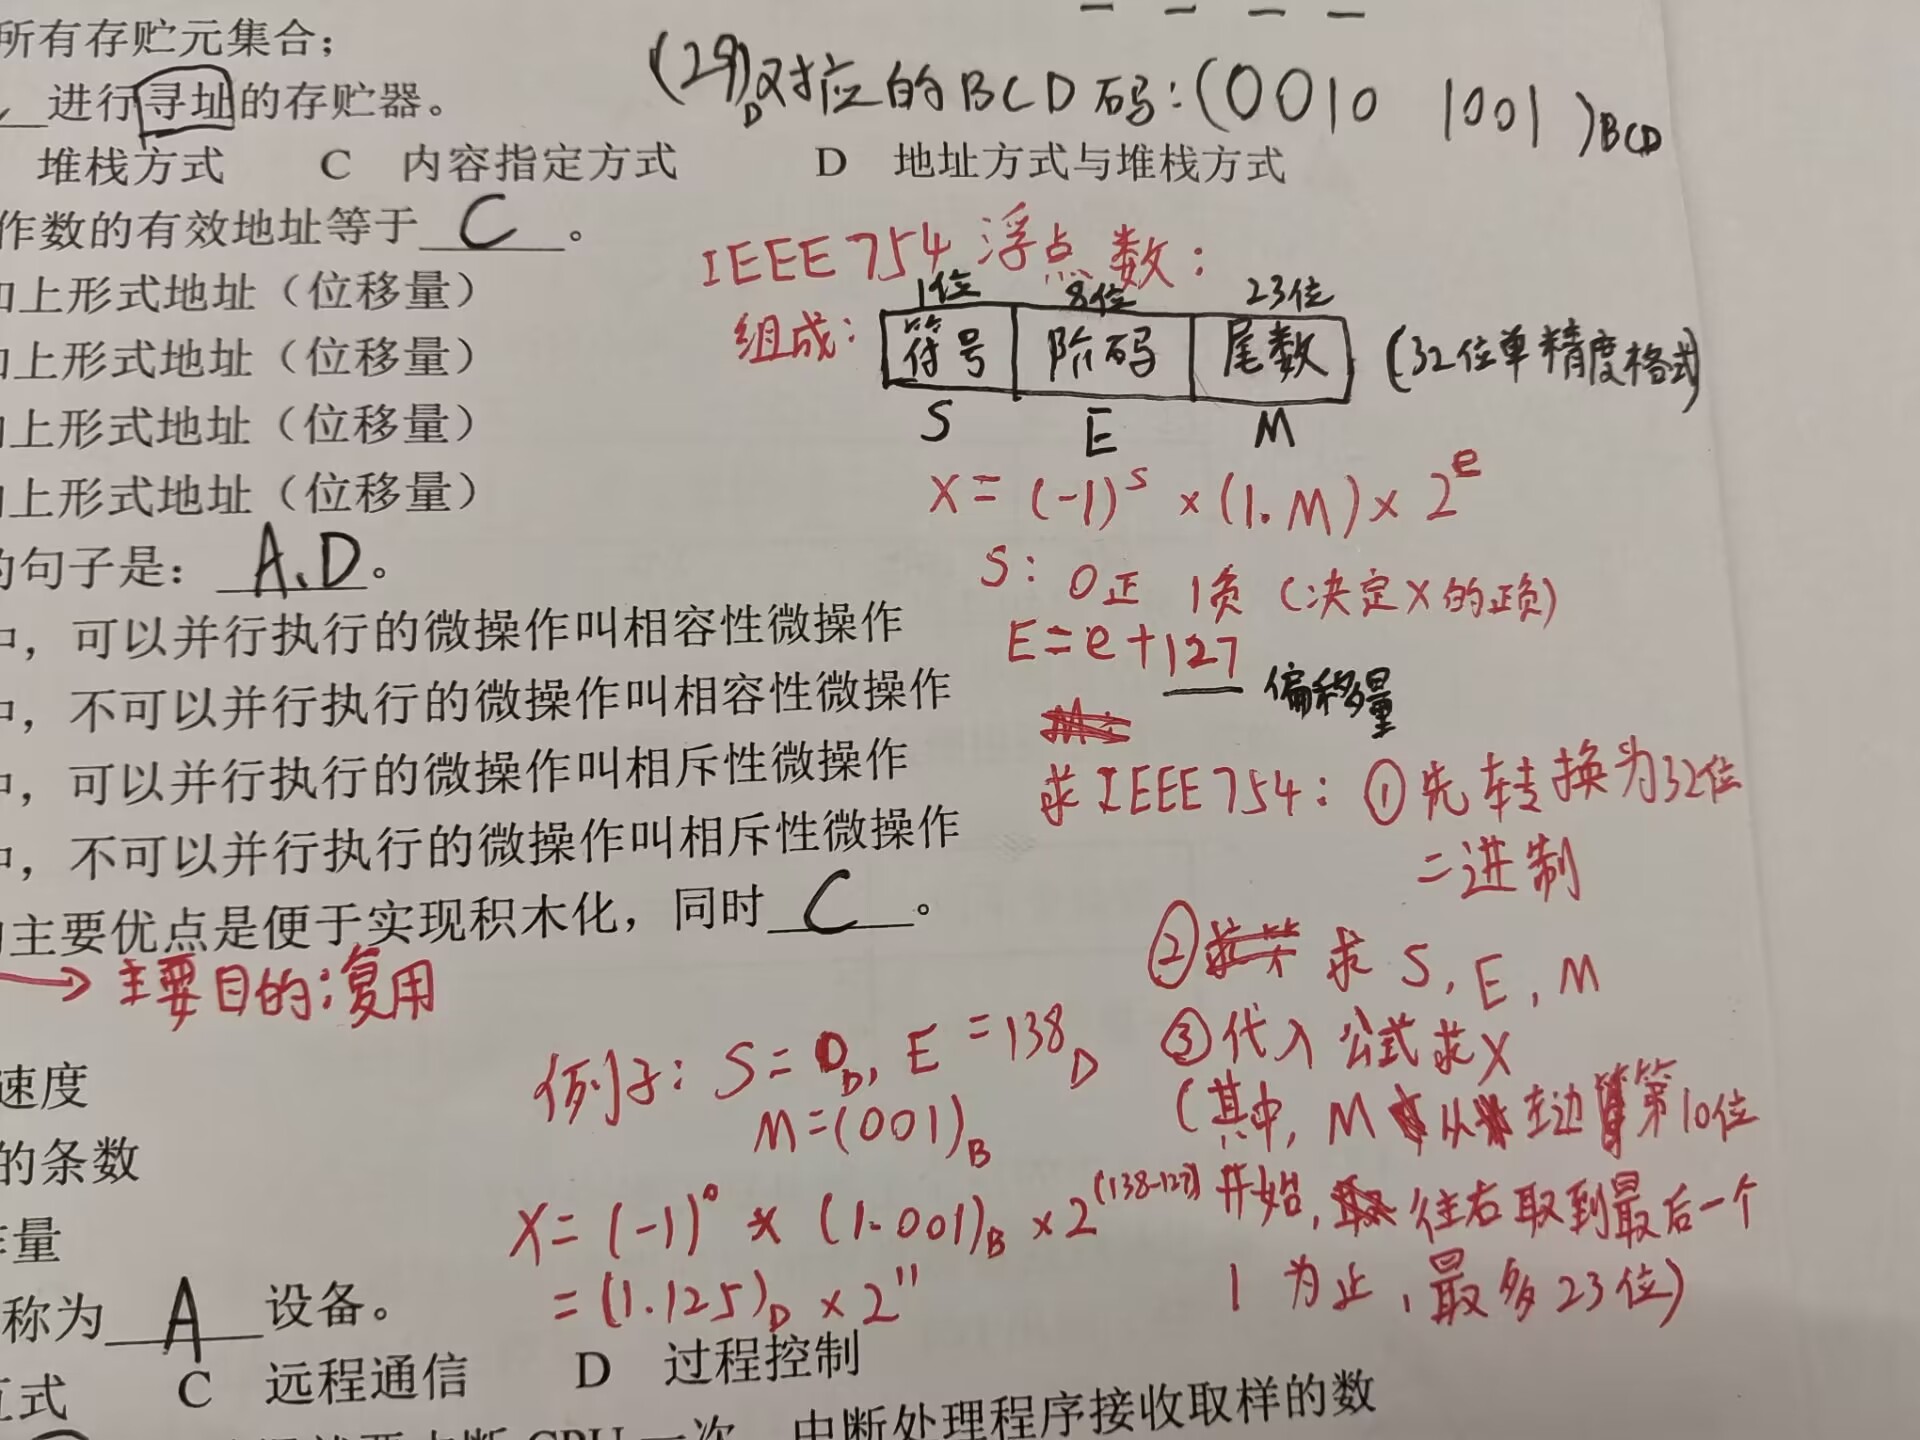 所有存贮元集合；
进行寻址的存贮器。
(29)D对应的BCD码：(0010 1001)BCD
堆栈方式 C 内容指定方式 D 地址方式与堆栈方式
作数的有效地址等于 C 。
加上形式地址（位移量）
加上形式地址（位移量）
加上形式地址（位移量）
加上形式地址（位移量）
的句子是： A、D 。
中，可以并行执行的微操作叫相容性微操作
中，不可以并行执行的微操作叫相容性微操作
中，可以并行执行的微操作叫相斥性微操作
中，不可以并行执行的微操作叫相斥性微操作
的主要优点是便于实现积木化，同时 C 。
→ 主要目的：复用
速度
的条数
作量
称为 A 设备。
互式 C 远程通信 D 过程控制
CPU 一次，中断处理程序接收取样的数
IEEE754 浮点数：
1位 8位 23位
组成： 符号 阶码 尾数 (32位单精度格式)
S E M
X = (-1)^S × (1.M) × 2^e
S： 0正 1负 (决定X的正负)
E = e + 127 偏移量
求IEEE754：①先转换为32位
二进制
② 求 S, E, M
③ 代入公式求X
(其中, M 从左边第10位
开始, 往右取到最后一个
1为止，最多23位)
例子：S = 0D, E = 138D
M = (001)B
X = (-1)^0 × (1.001)B × 2^(138-127)
= (1.125)D × 2^11